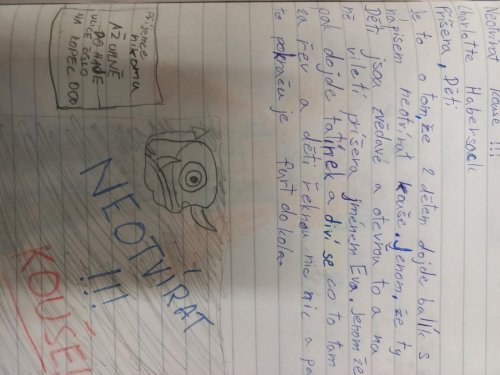 Neotvírat kouše !!!
Charlotte Habersack
Příšera, Děti
Je to o tom, že 2 dětem dojde balík s
nápisem neotvírat kouše. Jenom, že ty
Děti jsou zvědavé a otevřou to a na
ně viletí příšera jménem Eva. Jenom že
pak dojde tatínek a diví se co to tam
za řev a děti řeknou nic nic a pak
to pokračuje furt do kola.
Příjemce
nikomu
AZ ÚPLNĚ
DO HÁJE
ULICE ČÍSLO
KOPEC 000
NEOTVÍRAT
!!!
KOUŠE!